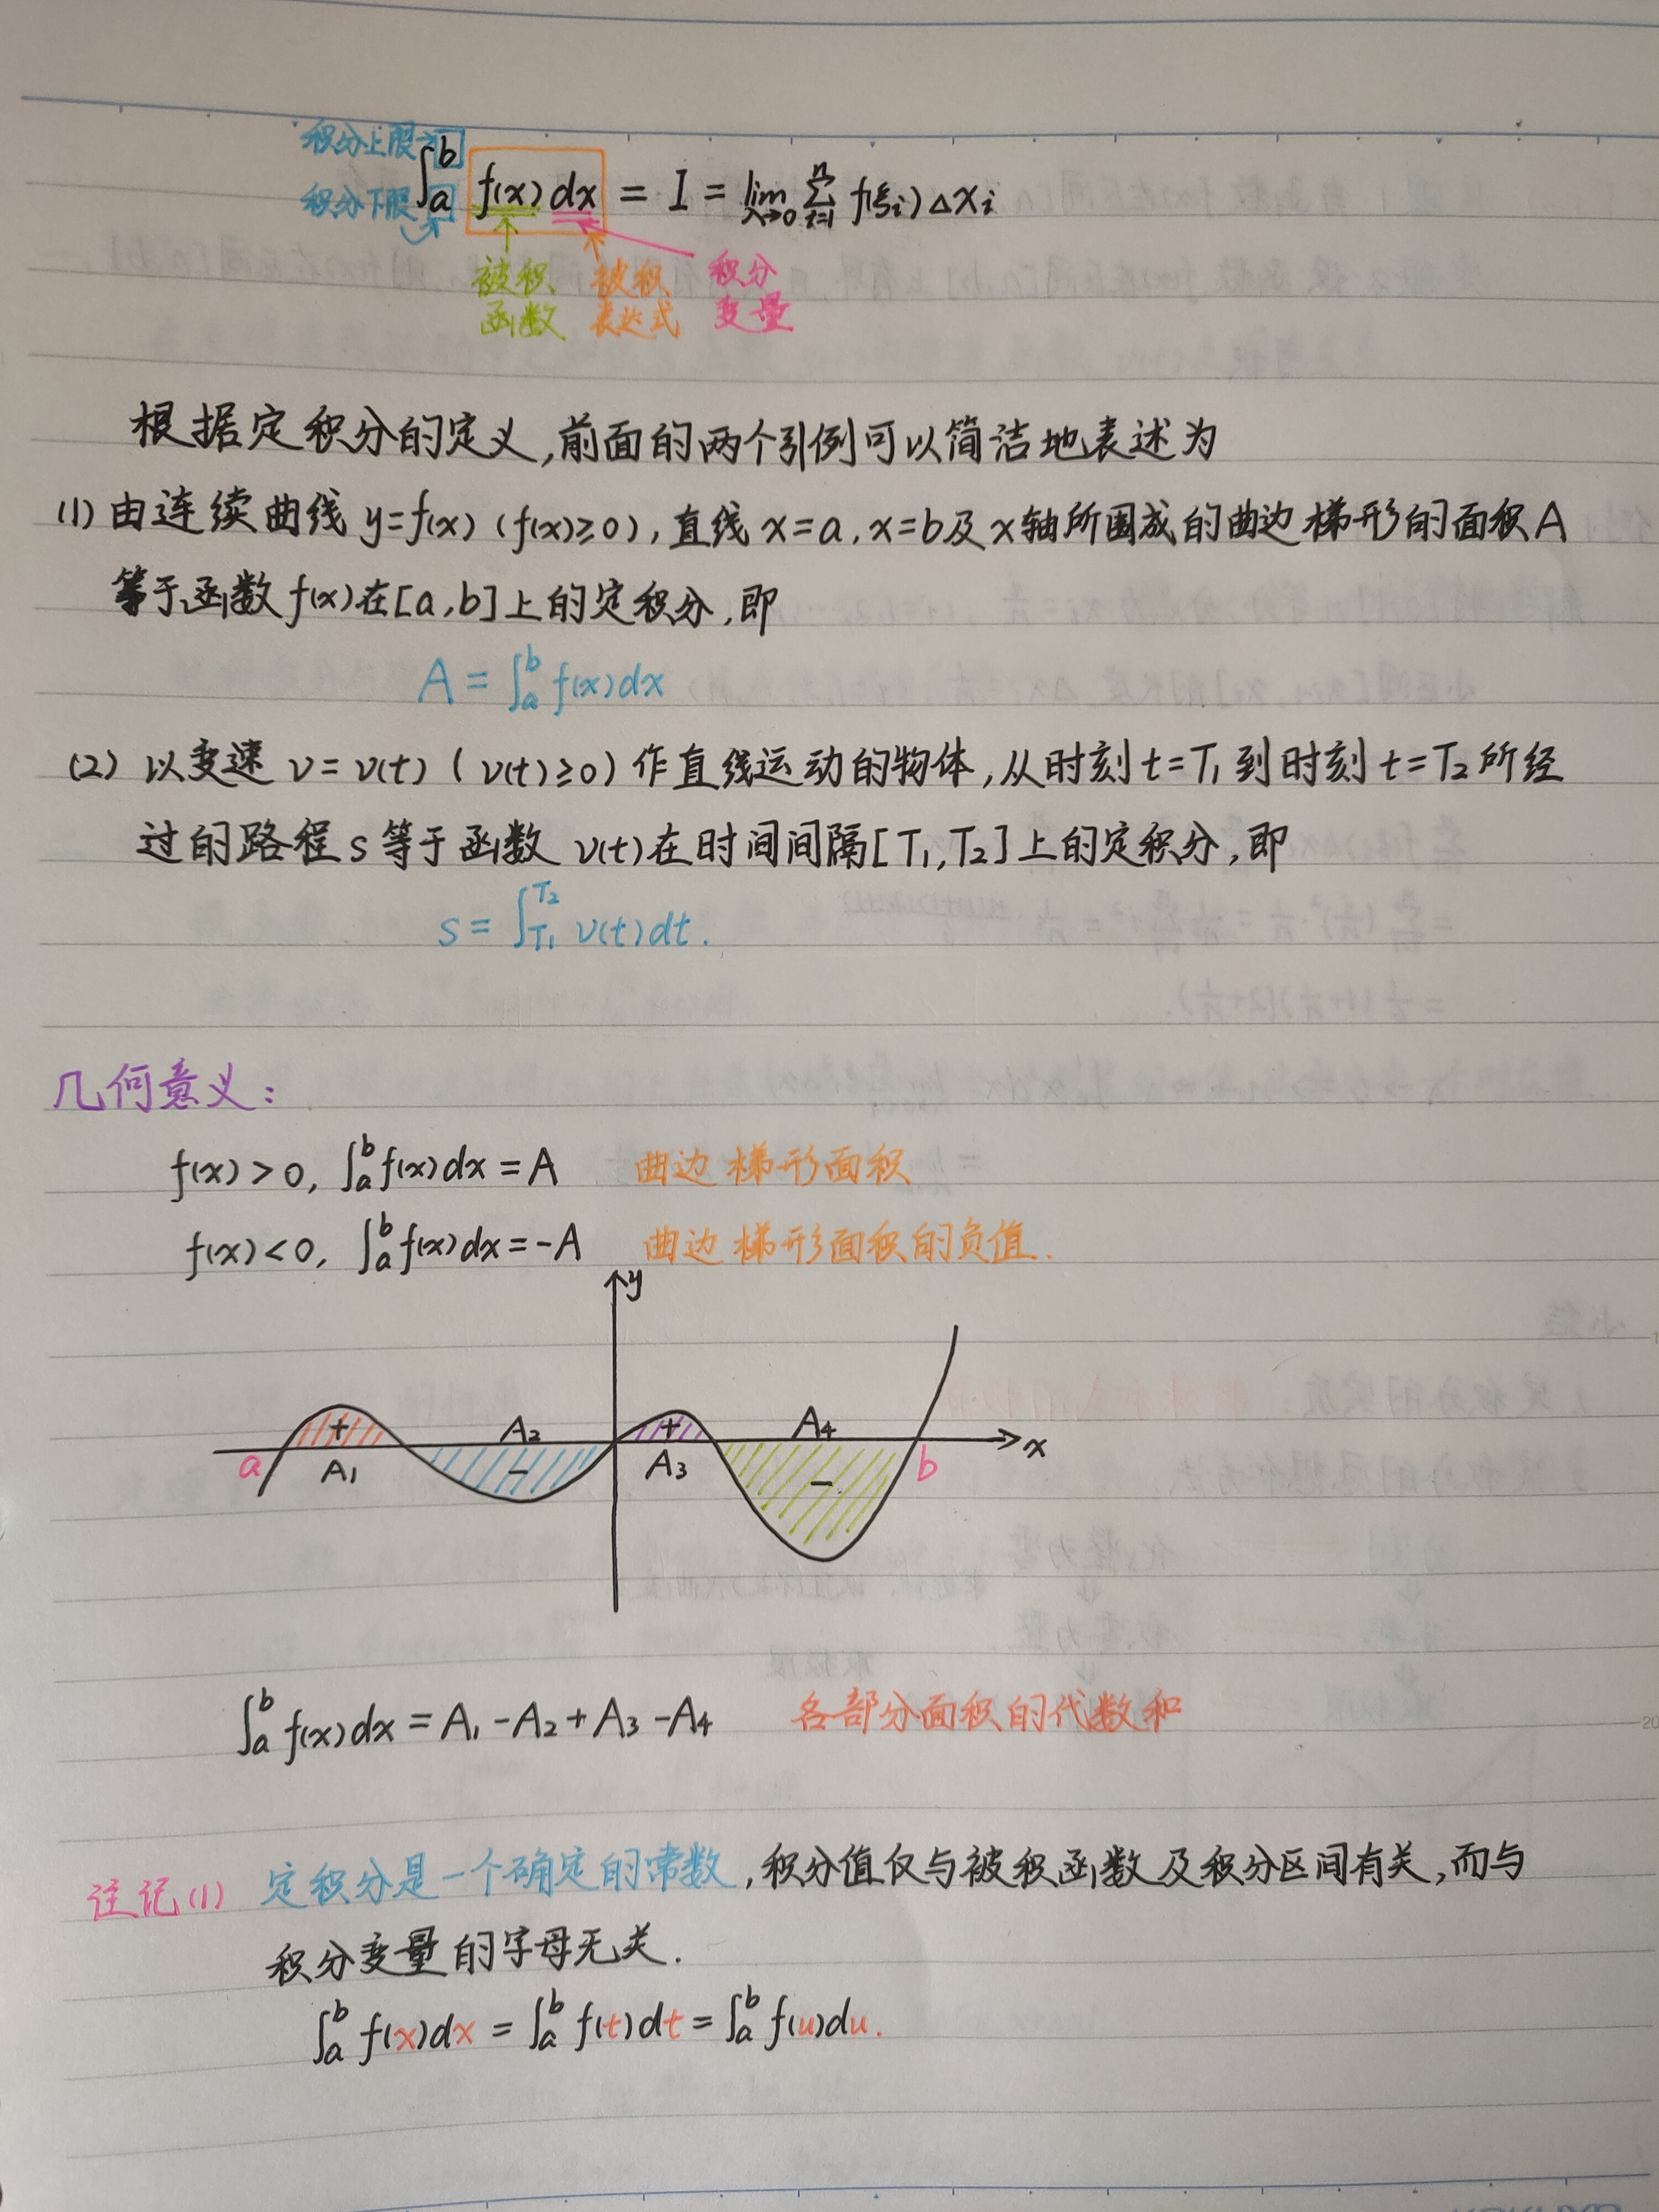 积分上限
积分下限
∫_a^b f(x)dx = I = lim_{λ→0} Σ_{i=1}^n f(ξi)Δxi
被积函数
被积表达式
积分变量
根据定积分的定义,前面的两个引例可以简洁地表述为
(1) 由连续曲线 y=f(x) (f(x)≥0), 直线 x=a, x=b及x轴所围成的曲边梯形的面积A
等于函数f(x)在[a,b]上的定积分,即
A = ∫_a^b f(x)dx
(2) 以变速 v=v(t) (v(t)≥0) 作直线运动的物体,从时刻t=T₁到时刻t=T₂所经
过的路程s等于函数 v(t)在时间间隔[T₁,T₂]上的定积分,即
s = ∫_{T₁}^{T₂} v(t)dt.
几何意义:
f(x)>0, ∫_a^b f(x)dx = A 曲边梯形面积
f(x)<0, ∫_a^b f(x)dx = -A 曲边梯形面积的负值..
y
+ A₂ + A₄
a A₁ - A₃ - b x
∫_a^b f(x)dx = A₁-A₂+A₃-A₄ 各部分面积的代数和
注记(1) 定积分是一个确定的常数,积分值仅与被积函数及积分区间有关,而与
积分变量的字母无关.
∫_a^b f(x)dx = ∫_a^b f(t)dt = ∫_a^b f(u)du.
20